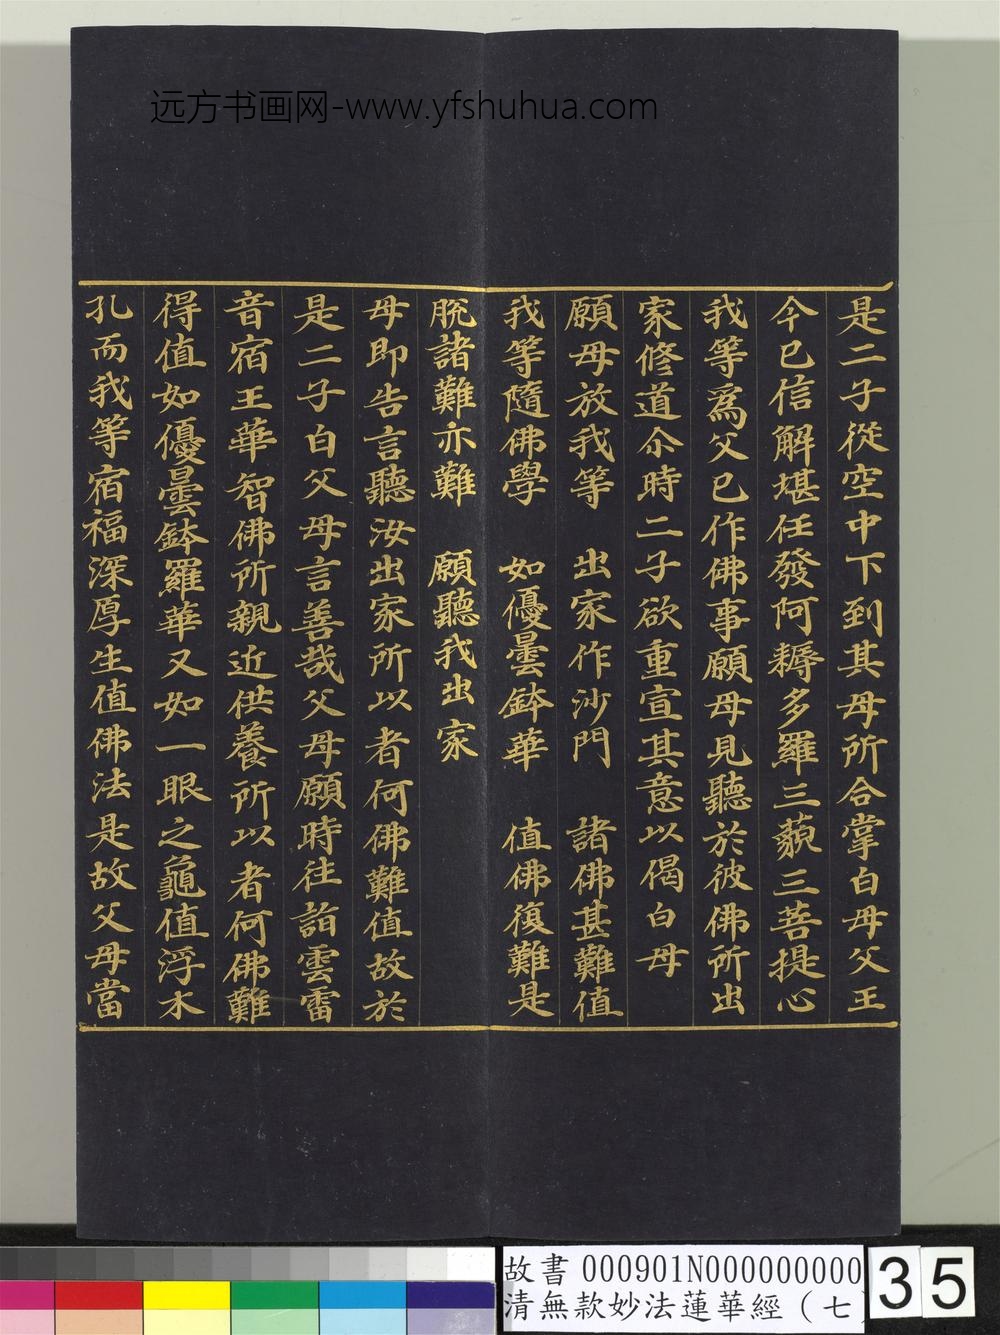 远方书画网-www.yfshuhua.com
是二子從空中下到其母所合掌白母父王
今已信解堪任發阿耨多羅三藐三菩提心
我等為父已作佛事願母見聽於彼佛所出
家修道尒時二子欲重宣其意以偈白母
願母放我等 出家作沙門 諸佛甚難值
我等隨佛學 如優曇鉢華 值佛復難是
脫諸難亦難 願聽我出家
母即告言聽汝出家所以者何佛難值故於
是二子白父母言善哉父母願時往詣雲雷
音宿王華智佛所親近供養所以者何佛難
得值如優曇鉢羅華又如一眼之龜值浮木
孔而我等宿福深厚生值佛法是故父母當
故書 000901N000000000
清無款妙法蓮華經（七）
35